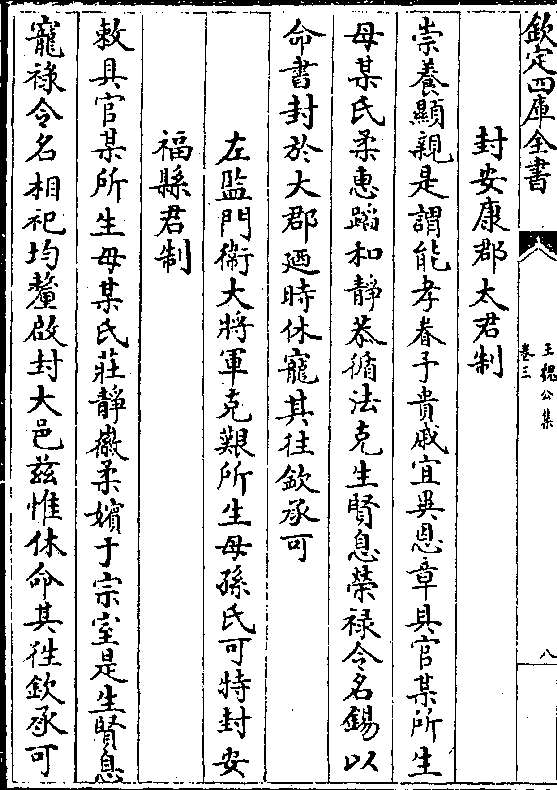 欽定四庫全書
王魏公集
卷三
八
封安康郡太君制
崇養顯親是謂能孝眷予貴戚宜異恩章具官某所生
母某氏柔惠蹈和靜恭循法克生賢息榮禄令名錫以
命書封於大郡廼時休寵其往欽承可
左監門衛大將軍克艱所生母孫氏可特封安
福縣君制
敕具官某所生母某氏莊靜徽柔嬪于宗室是生賢息
寵禄令名相祀均釐啟封大邑兹惟休命其往欽承可